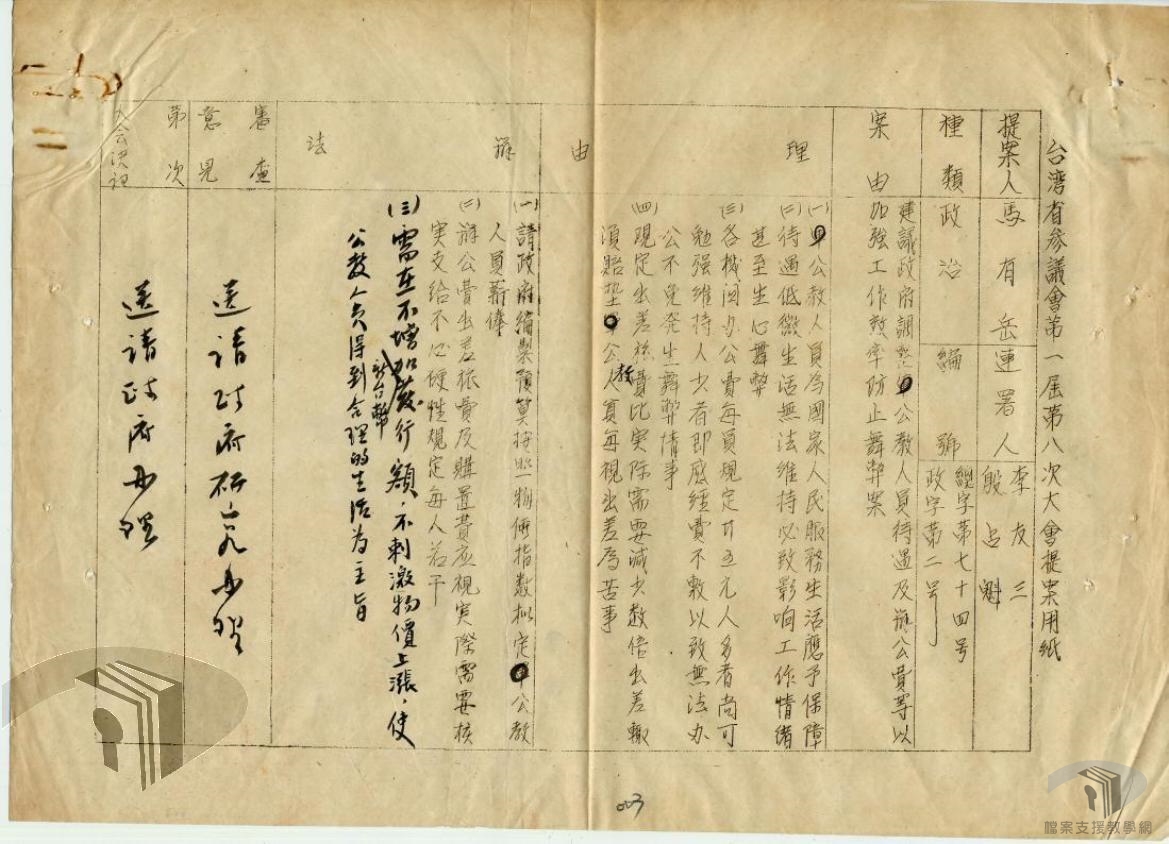 台湾省参議會第一屆第八次大會提案用紙
提案人 馬有岳 連署人 李友三
殷占魁
種類 政治 編號 經字第七十四号
政字第二号
案由 建議政府調整公教人員待遇及辦公費等以
加強工作効率防止舞弊案
理由
(一)公教人員為國家人民服務生活應予保障
(二)待遇低微生活無法維持必致影响工作情緒
甚至生心舞弊
(三)各机関办公費每員規定廿五元人多者尚可
勉强維持人少者即感經費不敷以致無法办
公不免発生舞弊情事
(四)現定出差旅費比実际需要减少数倍出差輙
須賠垫公教人員每視出差為苦事
辦法
(一)請政府編製預算按照物価指数拟定公教
人員薪俸
(二)辦公費出差旅費及購置費应視実際需要核
実支给不必硬性規定每人若干
(三)需在不增加新台幣發行額,不刺激物價上漲,使
公教人員得到合理的生活為主旨
審查意見 送請政府研究办理
第次大会决议 送請政府办理
003
檔案支援教學網